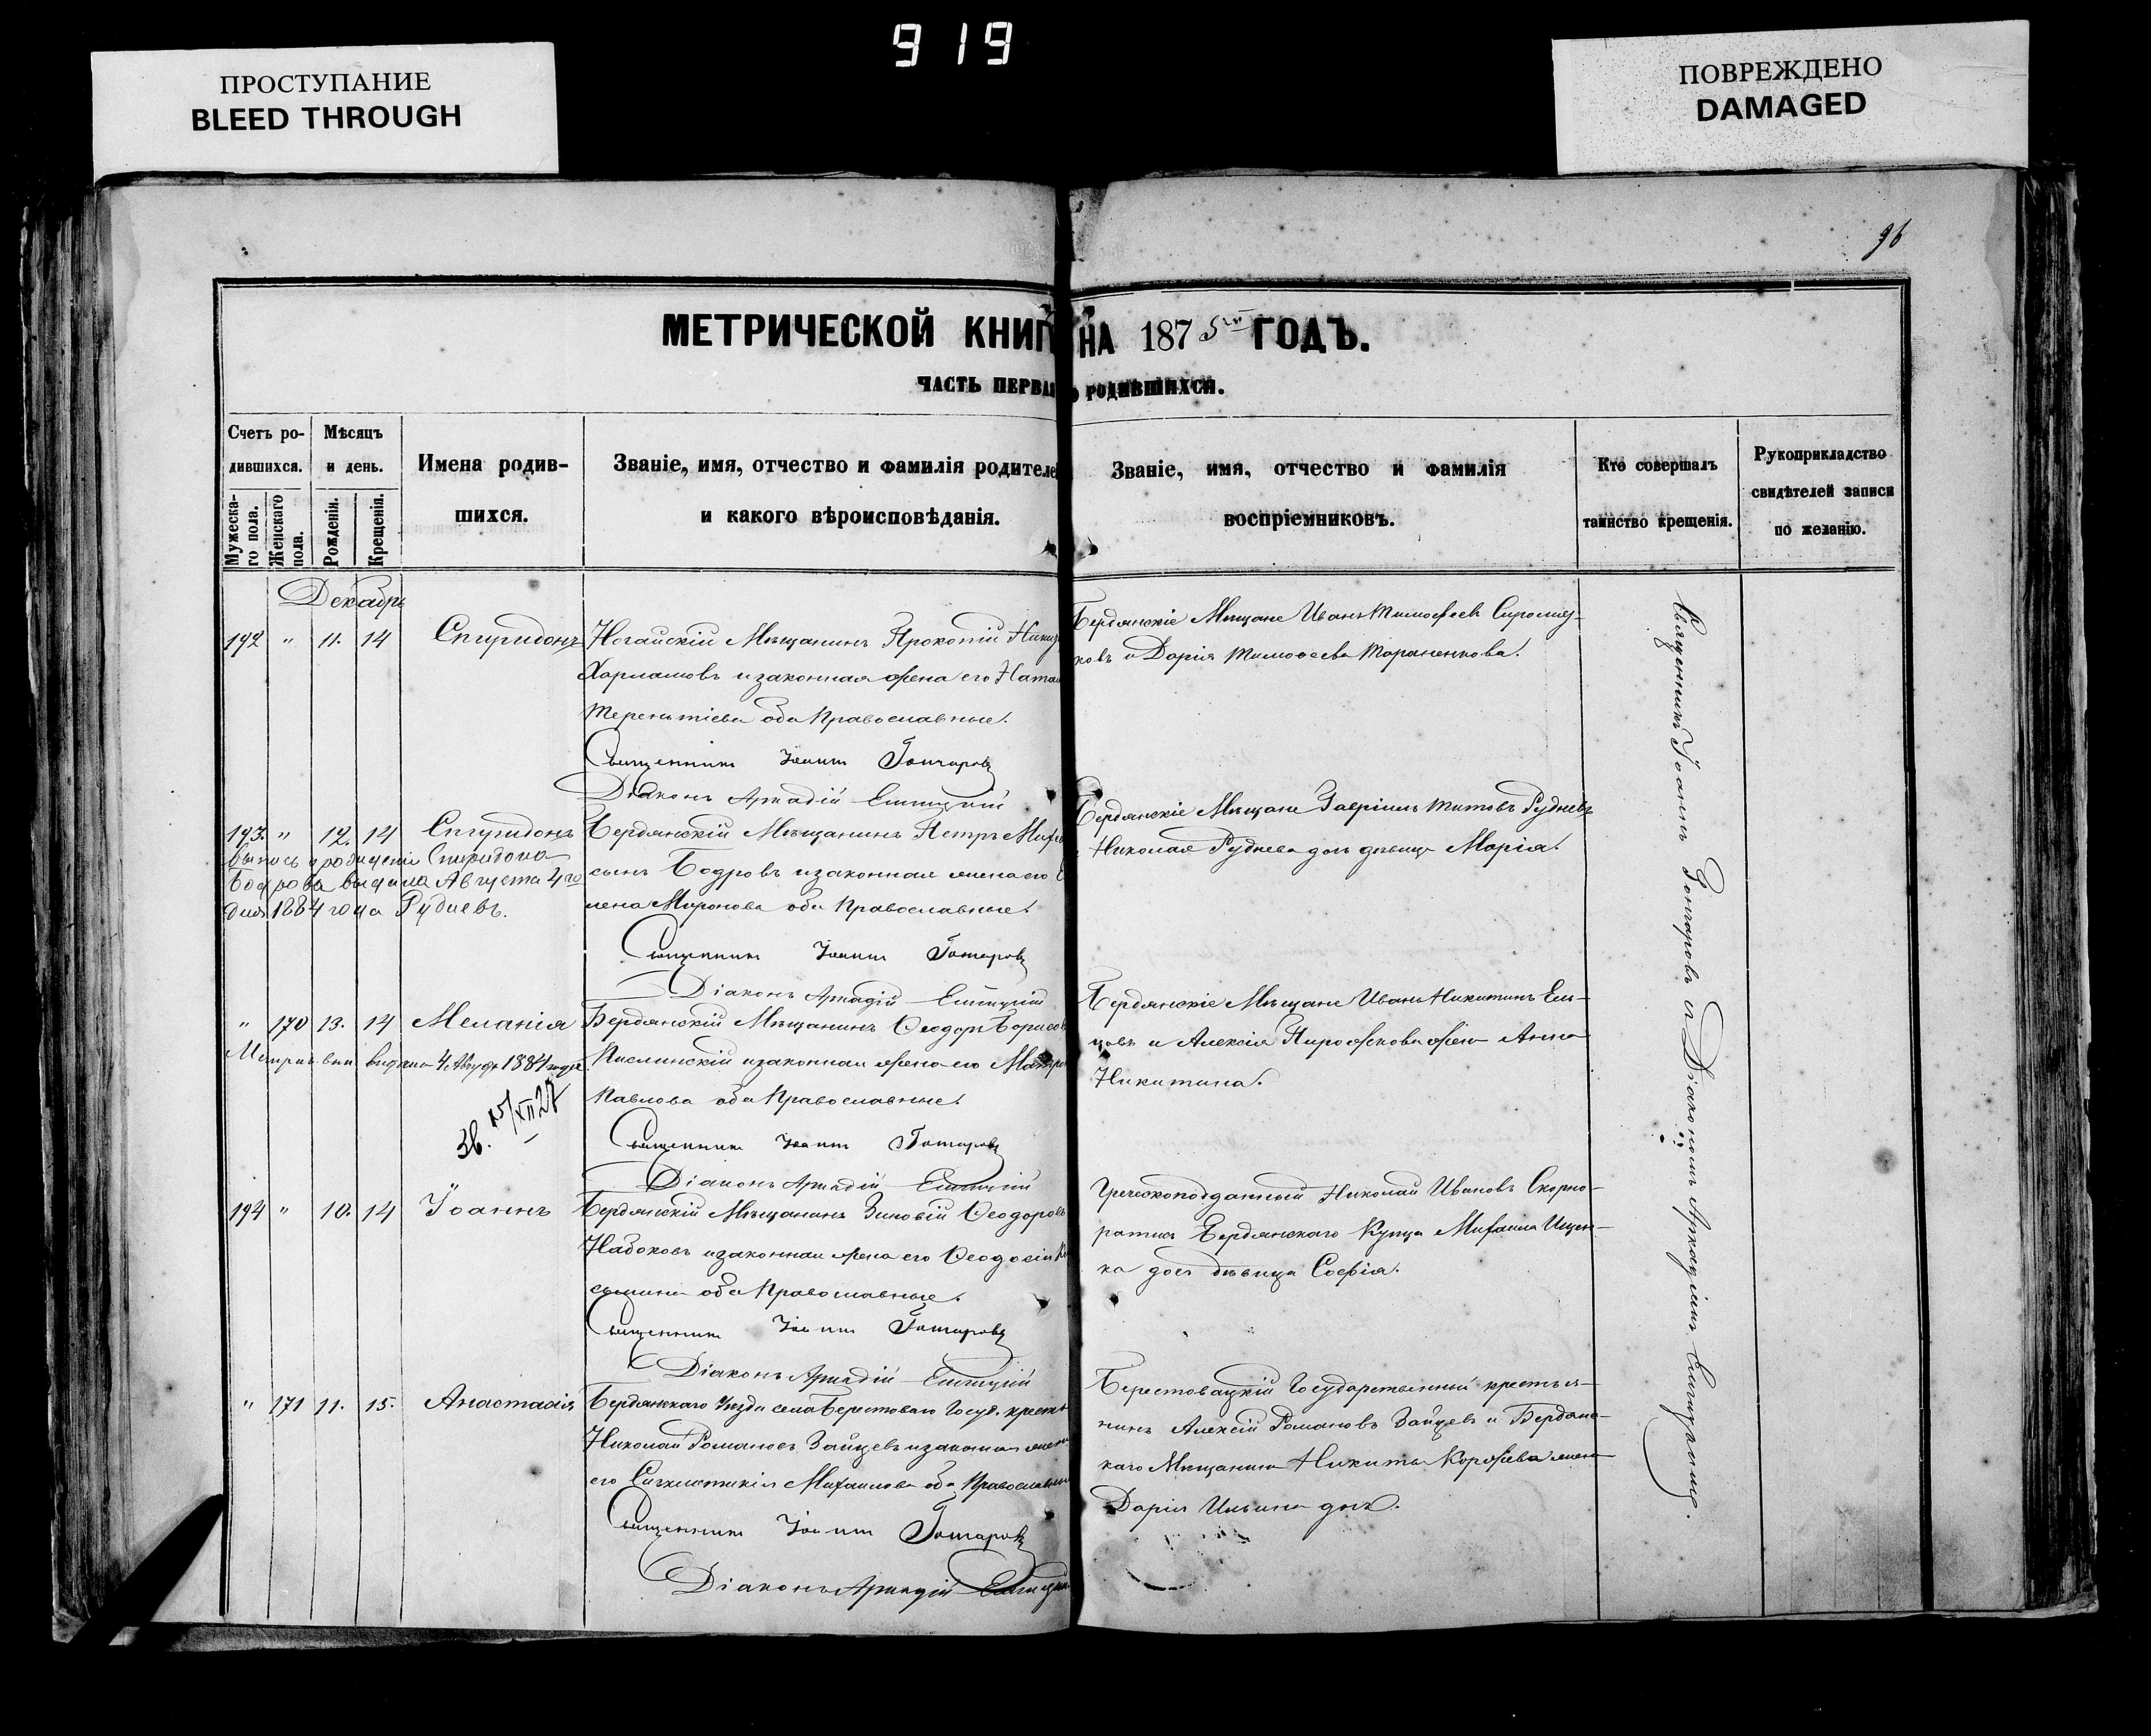 919
ПРОСТУПАНИЕ
BLEED THROUGH
ПОВРЕЖДЕНО
DAMAGED
96
МЕТРИЧЕСКОЙ КНИГ НА 1875 ГОДЪ.
ЧАСТЬ ПЕРВАЯ О РОДИВШИХСЯ.
Счетъ ро-
дившихся.
Мужеска-
го пола.
Женскаго
пола.
Мѣсяцъ
и день.
Рожденія.
Крещенія.
Имена родив-
шихся.
Званіе, имя, отчество и фамилія родителе
и какого вѣроисповѣданія.
Званіе, имя, отчество и фамилія
воспріемниковъ.
Кто совершалъ
таинство крещенія.
Рукоприкладство
свидѣтелей записи
по желанію.
Декабрь
192 " 11. 14 Спиридонъ
Ногайскій Мѣщанинъ Прокопій
Харламовъ и законная жена его Ната
Терентіева оба Православные.
Священникъ Іоаннъ Гончаровъ
Діаконъ Аркадій
Бердянскіе Мѣщане Иванъ Тимофеевъ
ковъ и Дарія Тимофеева Тараненкова.
193. " 12. 14 Спиридонъ
Выпись о рожденіи Спиридона
Бодрова выдана Августа 4го
дня 1884 года Рудневъ.
Бердянскій Мѣщанинъ Петръ
сынъ Бодровъ и законная жена его
лена Миронова оба Православные.
Священникъ Іоаннъ Гончаровъ
Діаконъ Аркадій
Бердянскіе Мѣщане Гавріилъ Титовъ Рудневъ
Николая Руднева дочь дѣвица Марія.
" 170 13. 14 Меланія
выдана 4 Августа 1884 года.
Зв. 15/XII 27
Бердянскій Мѣщанинъ Ѳеодоръ Борисов
Кислинскій и законная жена его Матро
Павлова оба Православные.
Священникъ Іоаннъ Гончаровъ
Діаконъ Аркадій
Бердянскіе Мѣщане Иванъ Никитинъ Ель-
цовъ и Алексія Пирожкова жена Анна
Никитина.
194 " 10. 14 Іоаннъ
Бердянскій Мѣщанинъ Зиновій Ѳеодоровъ
Набоковъ и законная жена его Ѳеодосія
оба Православные.
Священникъ Іоаннъ Гончаровъ
Діаконъ Аркадій
Греческоподданный Николай Ивановъ Скорпо-
Бердянскаго Купца Михаила Ищен-
ка дочь дѣвица Софія.
" 171 11. 15. Анастасія
Бердянскаго Уѣзда села Берестоваго Госуд. крест
Николай Романовъ Зайцевъ и законная жена
его Михаилова оба Православные
Священникъ Іоаннъ Гончаровъ
Діаконъ Аркадій
Берестовацкій Государственный крестья-
нинъ Алексій Романовъ Зайцевъ и Бердянс-
каго Мѣщанина Никиты Коржева жена
Дарія Ильина дочь.
Священникъ Іоаннъ Гончаровъ и Діакономъ Аркадіемъ